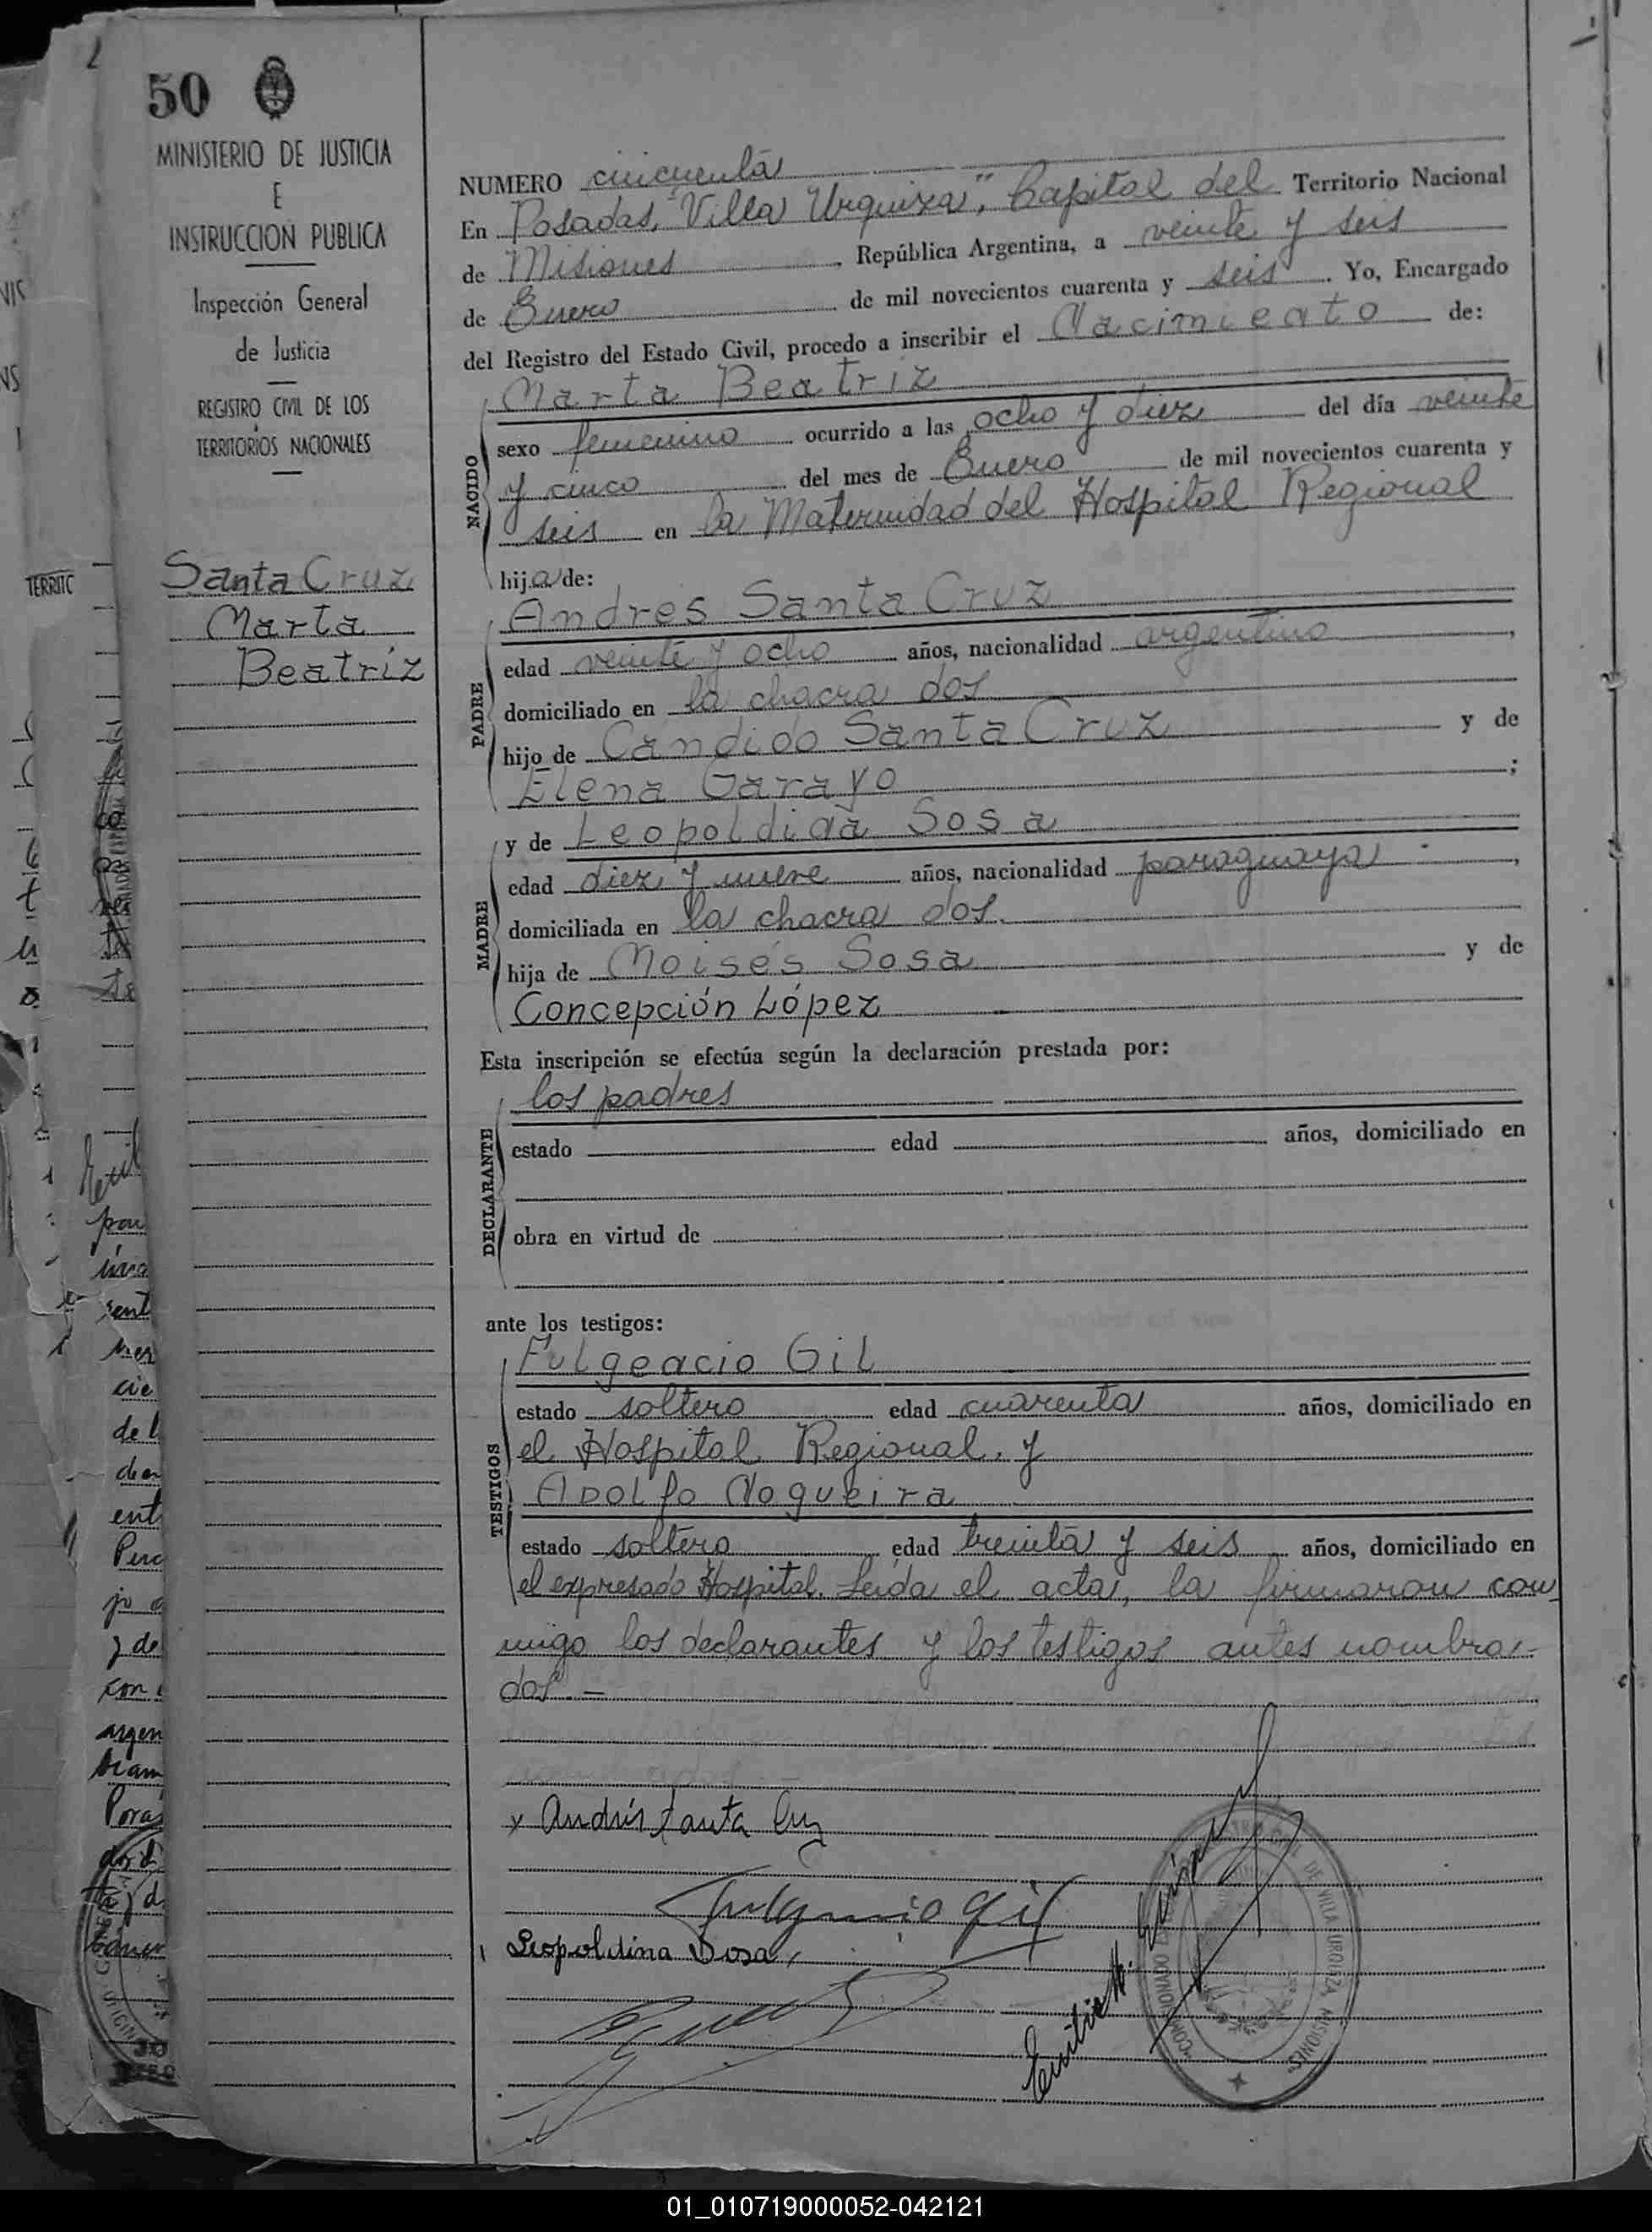 50
MINISTERIO DE JUSTICIA
E
INSTRUCCION PUBLICA
Inspección General
de Justicia
REGISTRO CIVIL DE LOS
TERRITORIOS NACIONALES
Santa Cruz
Marta
Beatríz
NUMERO cincuenta
En Posadas, "Villa Urquiza", Capital del Territorio Nacional
de Misiones, República Argentina, a veinte y seis
de Enero de mil novecientos cuarenta y seis. Yo, Encargado
del Registro del Estado Civil, procedo a inscribir el Nacimiento de:
NACIDO
Marta Beatriz
sexo femenino ocurrido a las ocho y diez del día veinte
y cinco del mes de Enero de mil novecientos cuarenta y
seis en la Maternidad del Hospital Regional
hija de:
PADRE
Andres Santa Cruz
edad veinte y ocho años, nacionalidad argentino,
domiciliado en la chacra dos
hijo de Candido Santa Cruz y de
Elena Garayo;
MADRE
y de Leopoldina Sosa
edad diez y nueve años, nacionalidad paraguaya,
domiciliada en la chacra dos.
hija de Moisés Sosa y de
Concepción López
Esta inscripción se efectúa según la declaración prestada por:
DECLARANTE
los padres
estado edad años, domiciliado en
obra en virtud de
ante los testigos:
TESTIGOS
Fulgencio Gil
estado soltero edad cuarenta años, domiciliado en
el Hospital Regional, y
Adolfo Nogueira
estado soltero edad treinta y seis años, domiciliado en
el expresado Hospital. Leida el acta, la firmaron con
migo los declarantes y los testigos antes nombra-
dos.—
x Andrés Santa Cruz
Fulgencio Gil
Leopoldina Sosa
Emilio
DE VILLA URQUIZA, MISIONES
01_010719000052-042121